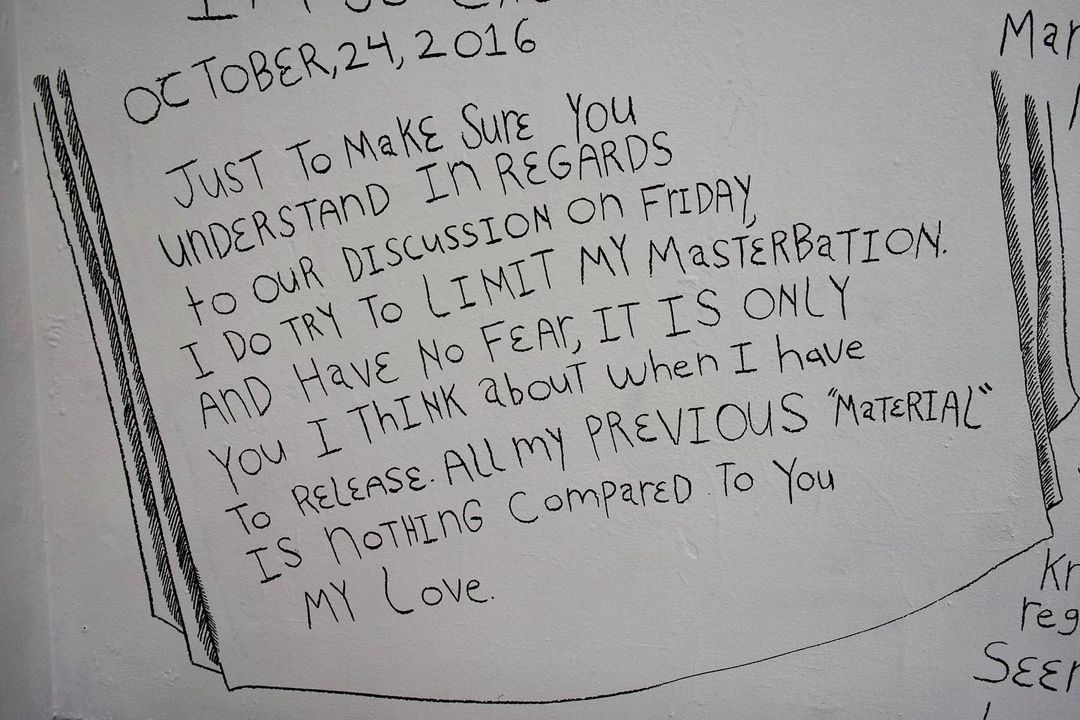 OCTOBER, 24, 2016
JUST TO MAKE SURE YOU
UNDERSTAND IN REGARDS
to OUR DISCUSSION On FRIDAY,
I DO TRY TO LIMIT MY MASTERBATION.
AND HAVE NO FEAr, IT IS ONLY
YOU I ThINK abouT when I have
To RELEASE. All my PREVIOUS "MATERIAL"
IS NOTHING COmPARED TO You
MY Love.
Mar
Kr
reg
SEEr